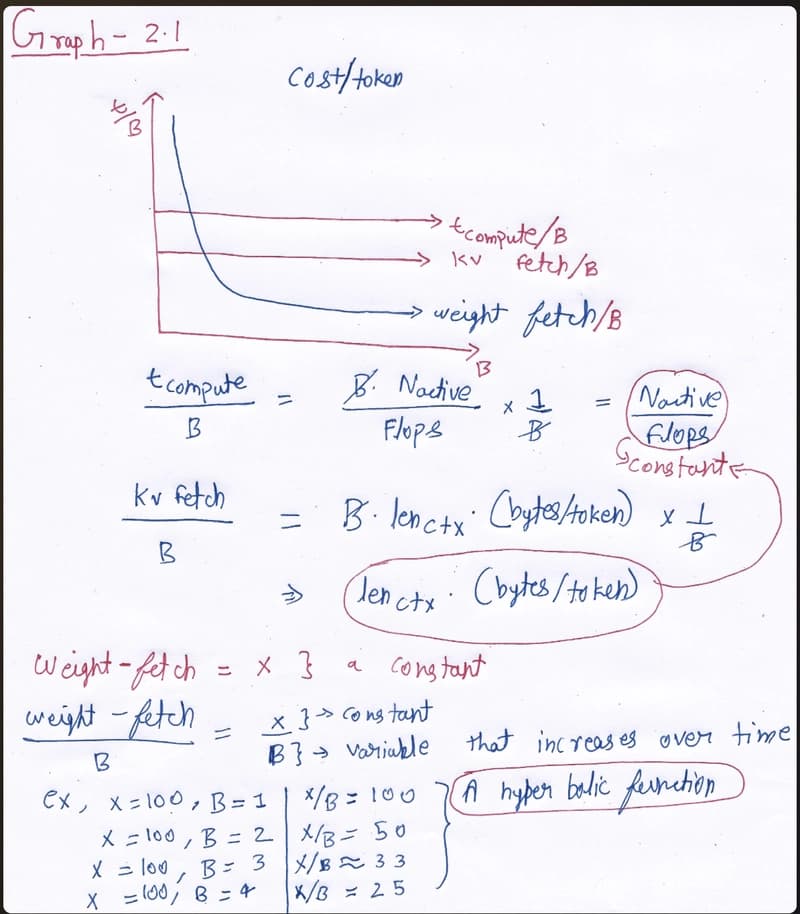 Graph - 2.1
Cost/token
t/B
tcompute/B
KV fetch/B
weight fetch/B
B
tcompute/B = B · Nactive/Flops × 1/B = Nactive/Flops
constant
KV fetch/B = B · lenctx · (bytes/token) × 1/B
⇒ lenctx · (bytes/token)
Weight-fetch = x } a constant
weight-fetch/B = x } → constant
B } → variable that increases over time
ex, x=100, B=1 | x/B = 100
A hyperbolic function
x=100, B=2 | x/B = 50
x=100, B=3 | x/B ≈ 33
x=100, B=4 | x/B = 25